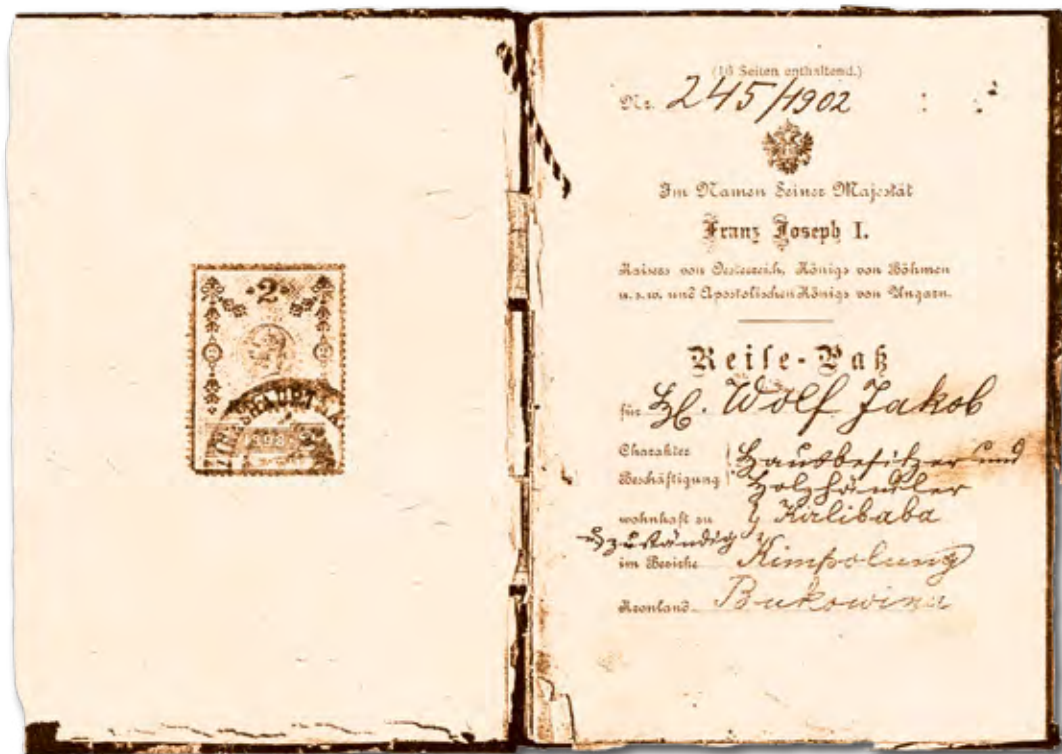 2
1898
(16 Seiten enthaltend.)
Nr. 245/1902
Im Namen Seiner Majestät
Franz Joseph I.
Kaisers von Oesterreich, Königs von Böhmen
u.s.w. und Apostolischen Königs von Ungarn.
Reise-Paß
für H. Wolf Jakob
Charakter
Beschäftigung } Hausbesitzer und
Holzhändler
wohnhaft zu } Kirlibaba
u zuständig
im Bezirke Kimpolung
Kronland Bukowina